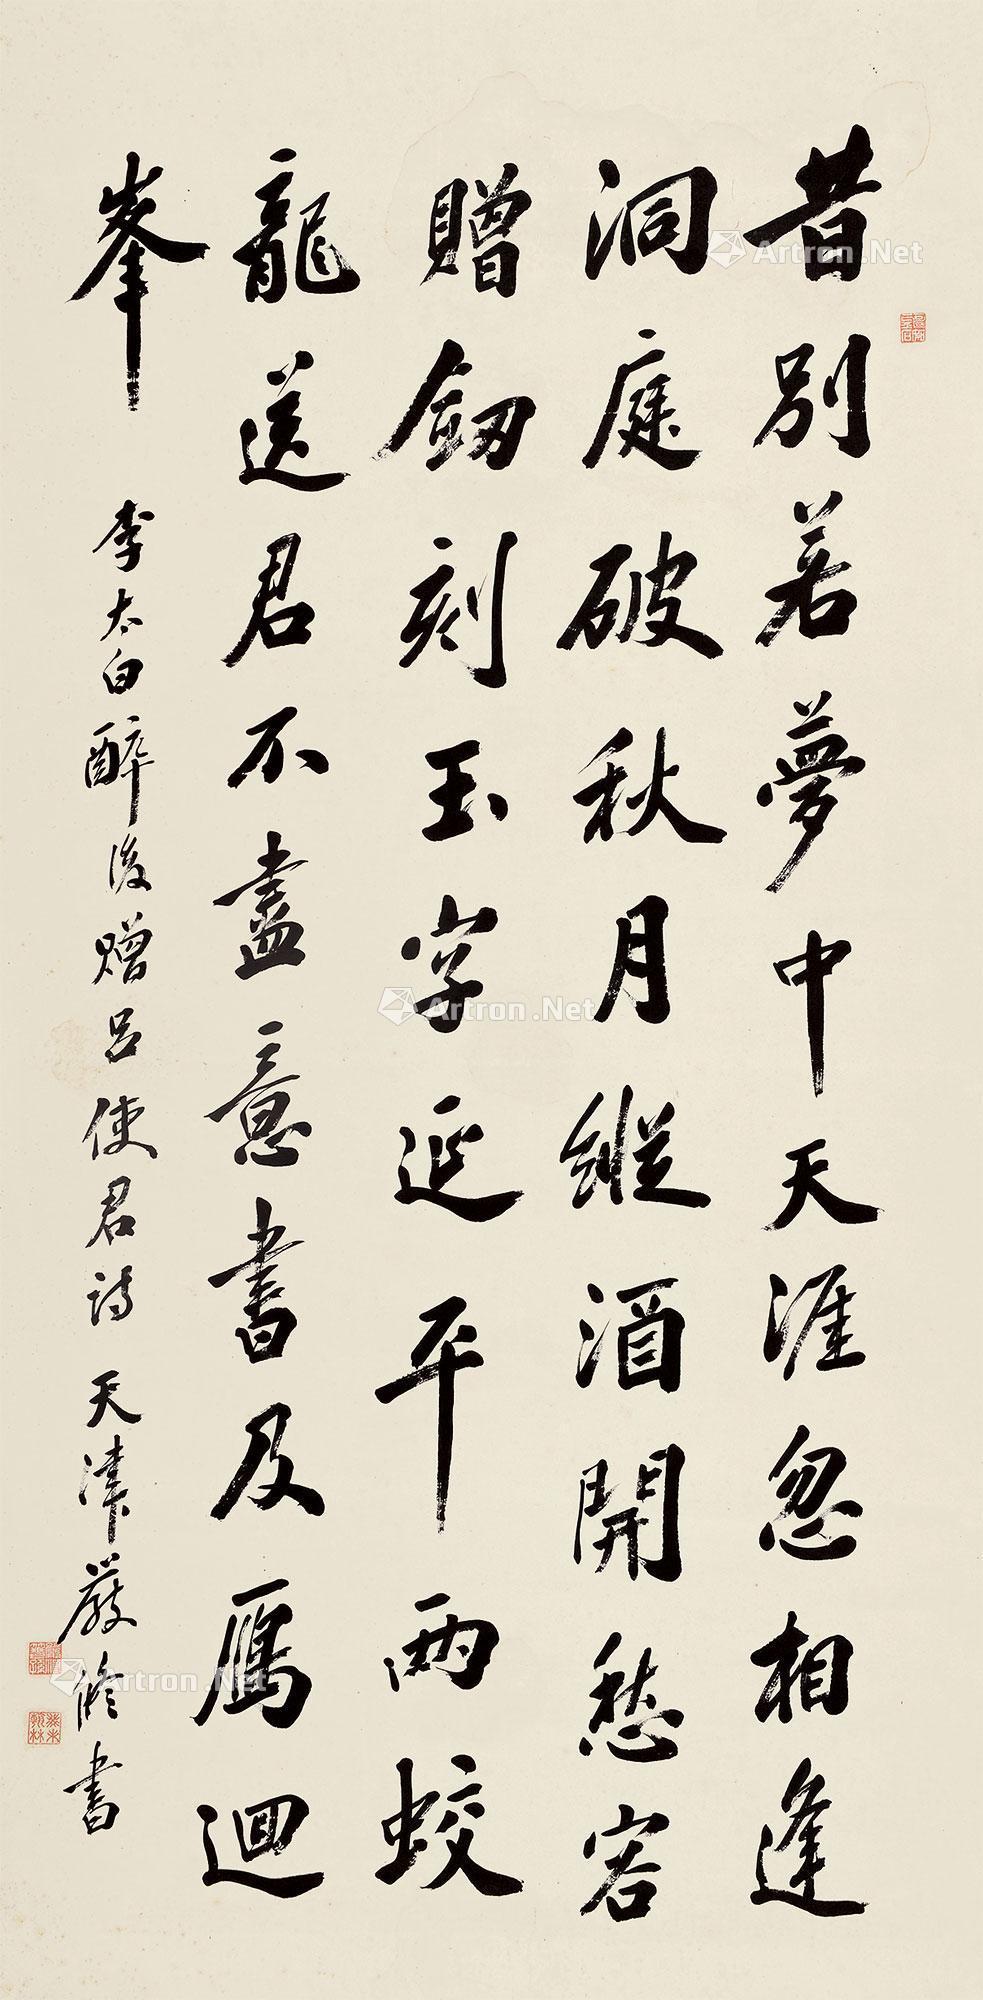 昔別若夢中天涯忽相逢
洞庭破秋月縱酒開愁容
贈劒刻玉字延平兩蛟
龍送君不盡意書及雁迴
峯
李太白醉後贈呂使君詩 天津嚴修書
Artron.Net
Artron.Net
Artron.Net